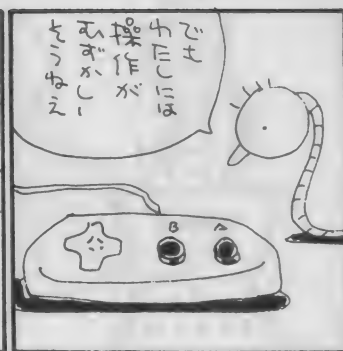 でも
わたしには
操作が
むずかしー
そうねえ
B A